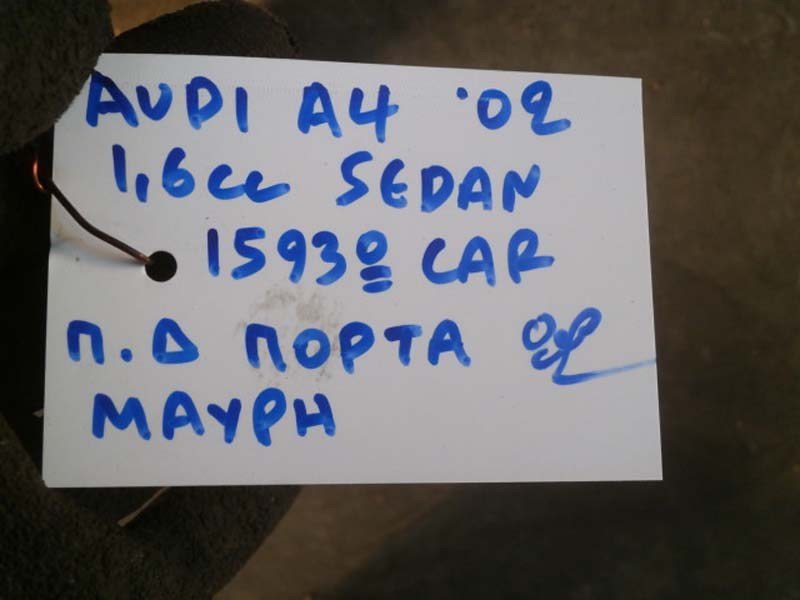 AUDI A4 '02
1,6cc SEDAN
1593º CAR
Π.Δ ΠΟΡΤΑ
ΜΑΥΡΗ